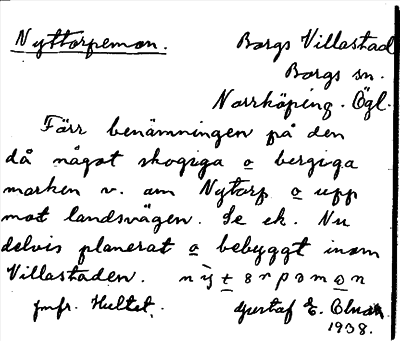 Nyttorpemon.
Borgs Villastad
Borgs sn.
Norrköping. Ögl.
Förr benämningen på den
då något skogiga o bergiga
marken v. om Nytorp o upp
mot landsvägen. Se ek. Nu
delvis planerat o bebyggt inom
Villastaden.
jmfr. Hultet.
Gustaf E.
1938.